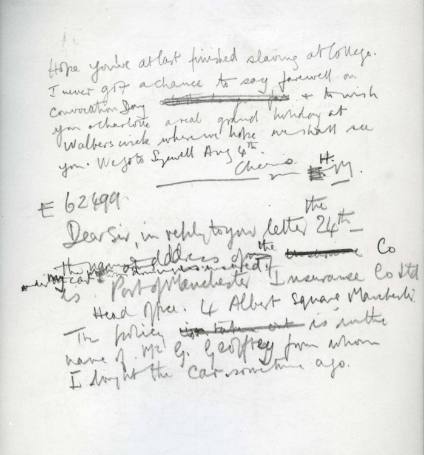 Hope you've at last finished slaving at College.
I never got a chance to say farewell on
Convocation Day & to wish
you & Charlotte a real grand holiday at
Walberswick where we hope we shall see
you. We go to Sywell Aug 4th.
Cheerio
H.
E 62499.
Dear Sir, in reply to your letter the 24th
the name & address of the Co
is Port of Manchester Insurance Co Ltd
Head Office. 4 Albert Square Manchester
The policy is in the
name of Mr G. Geoffrey from whom
I bought the car some time ago.